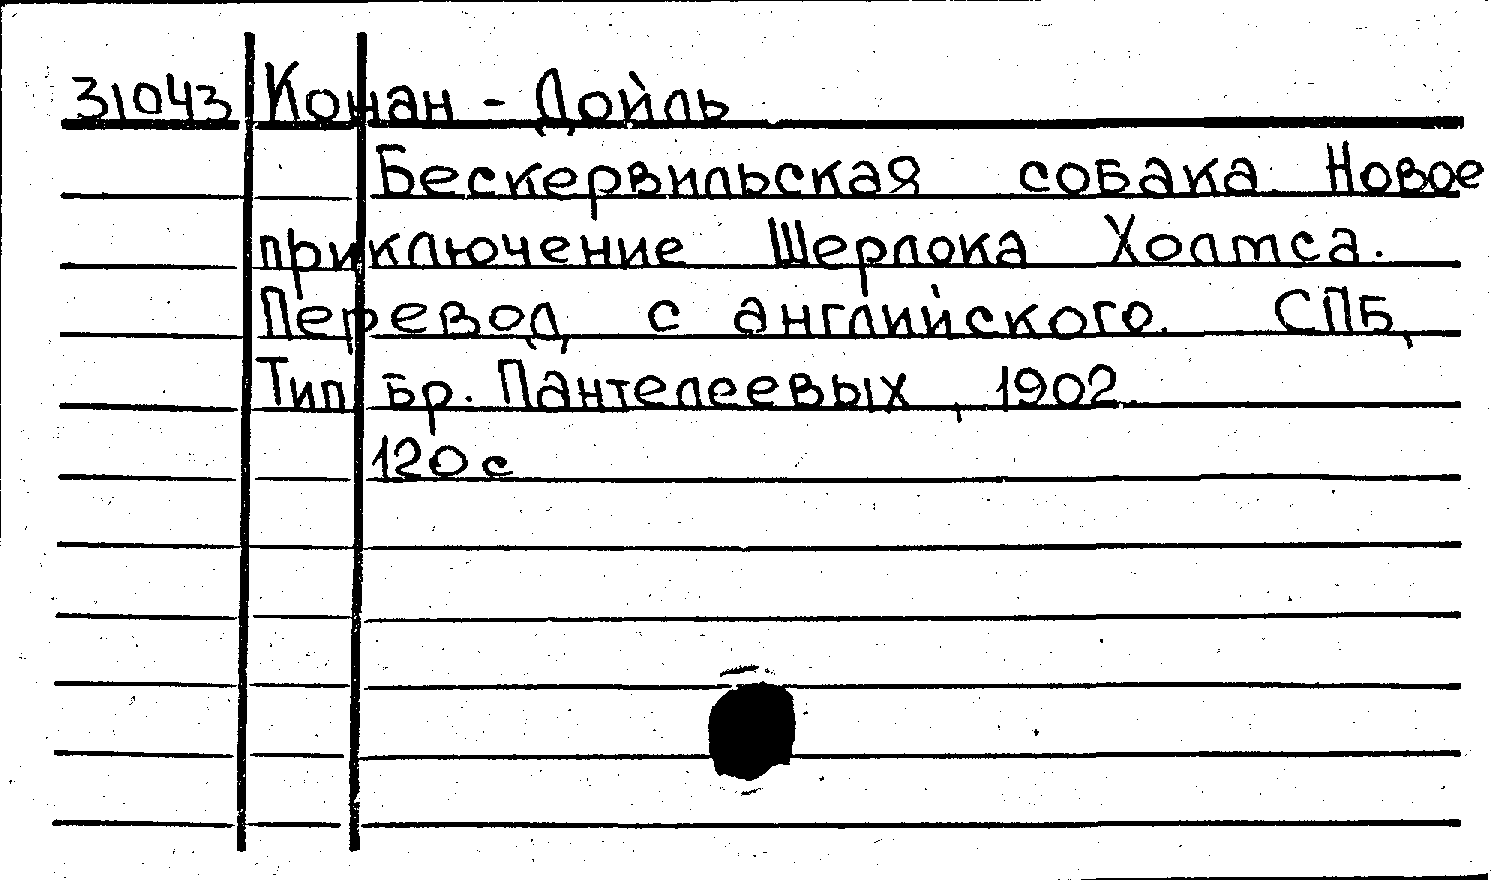 31043 Конан - Дойль
Бескервильская собака. Новое
приключение Шерлока Холмса.
Перевод с английского. СПБ,
Тип. бр. Пантелеевых, 1902.
120 с